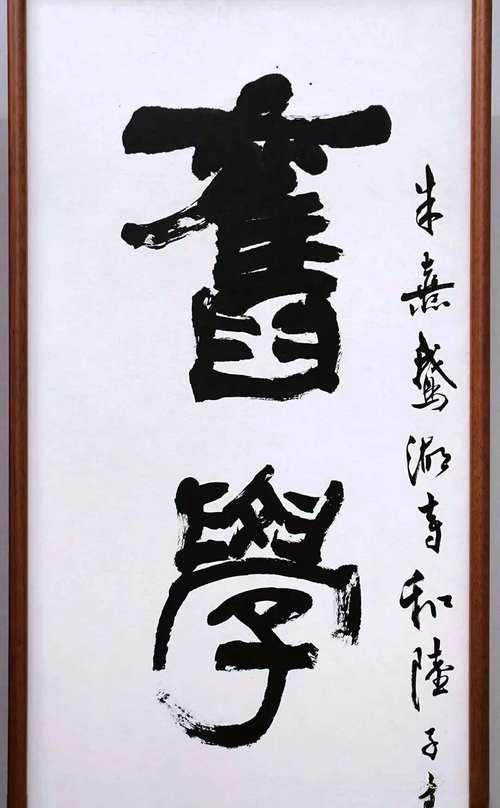 舊學
朱熹鵝湖寺和陸子